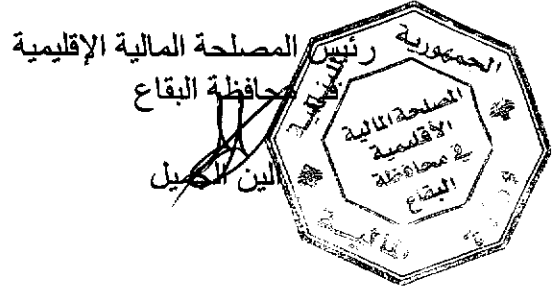 رئيس المصلحة المالية الإقليمية
في محافظة البقاع
الين
الجمهورية
اللبنانية
المصلحة المالية
الاقليمية
في محافظة
البقاع
وزارة
المالية